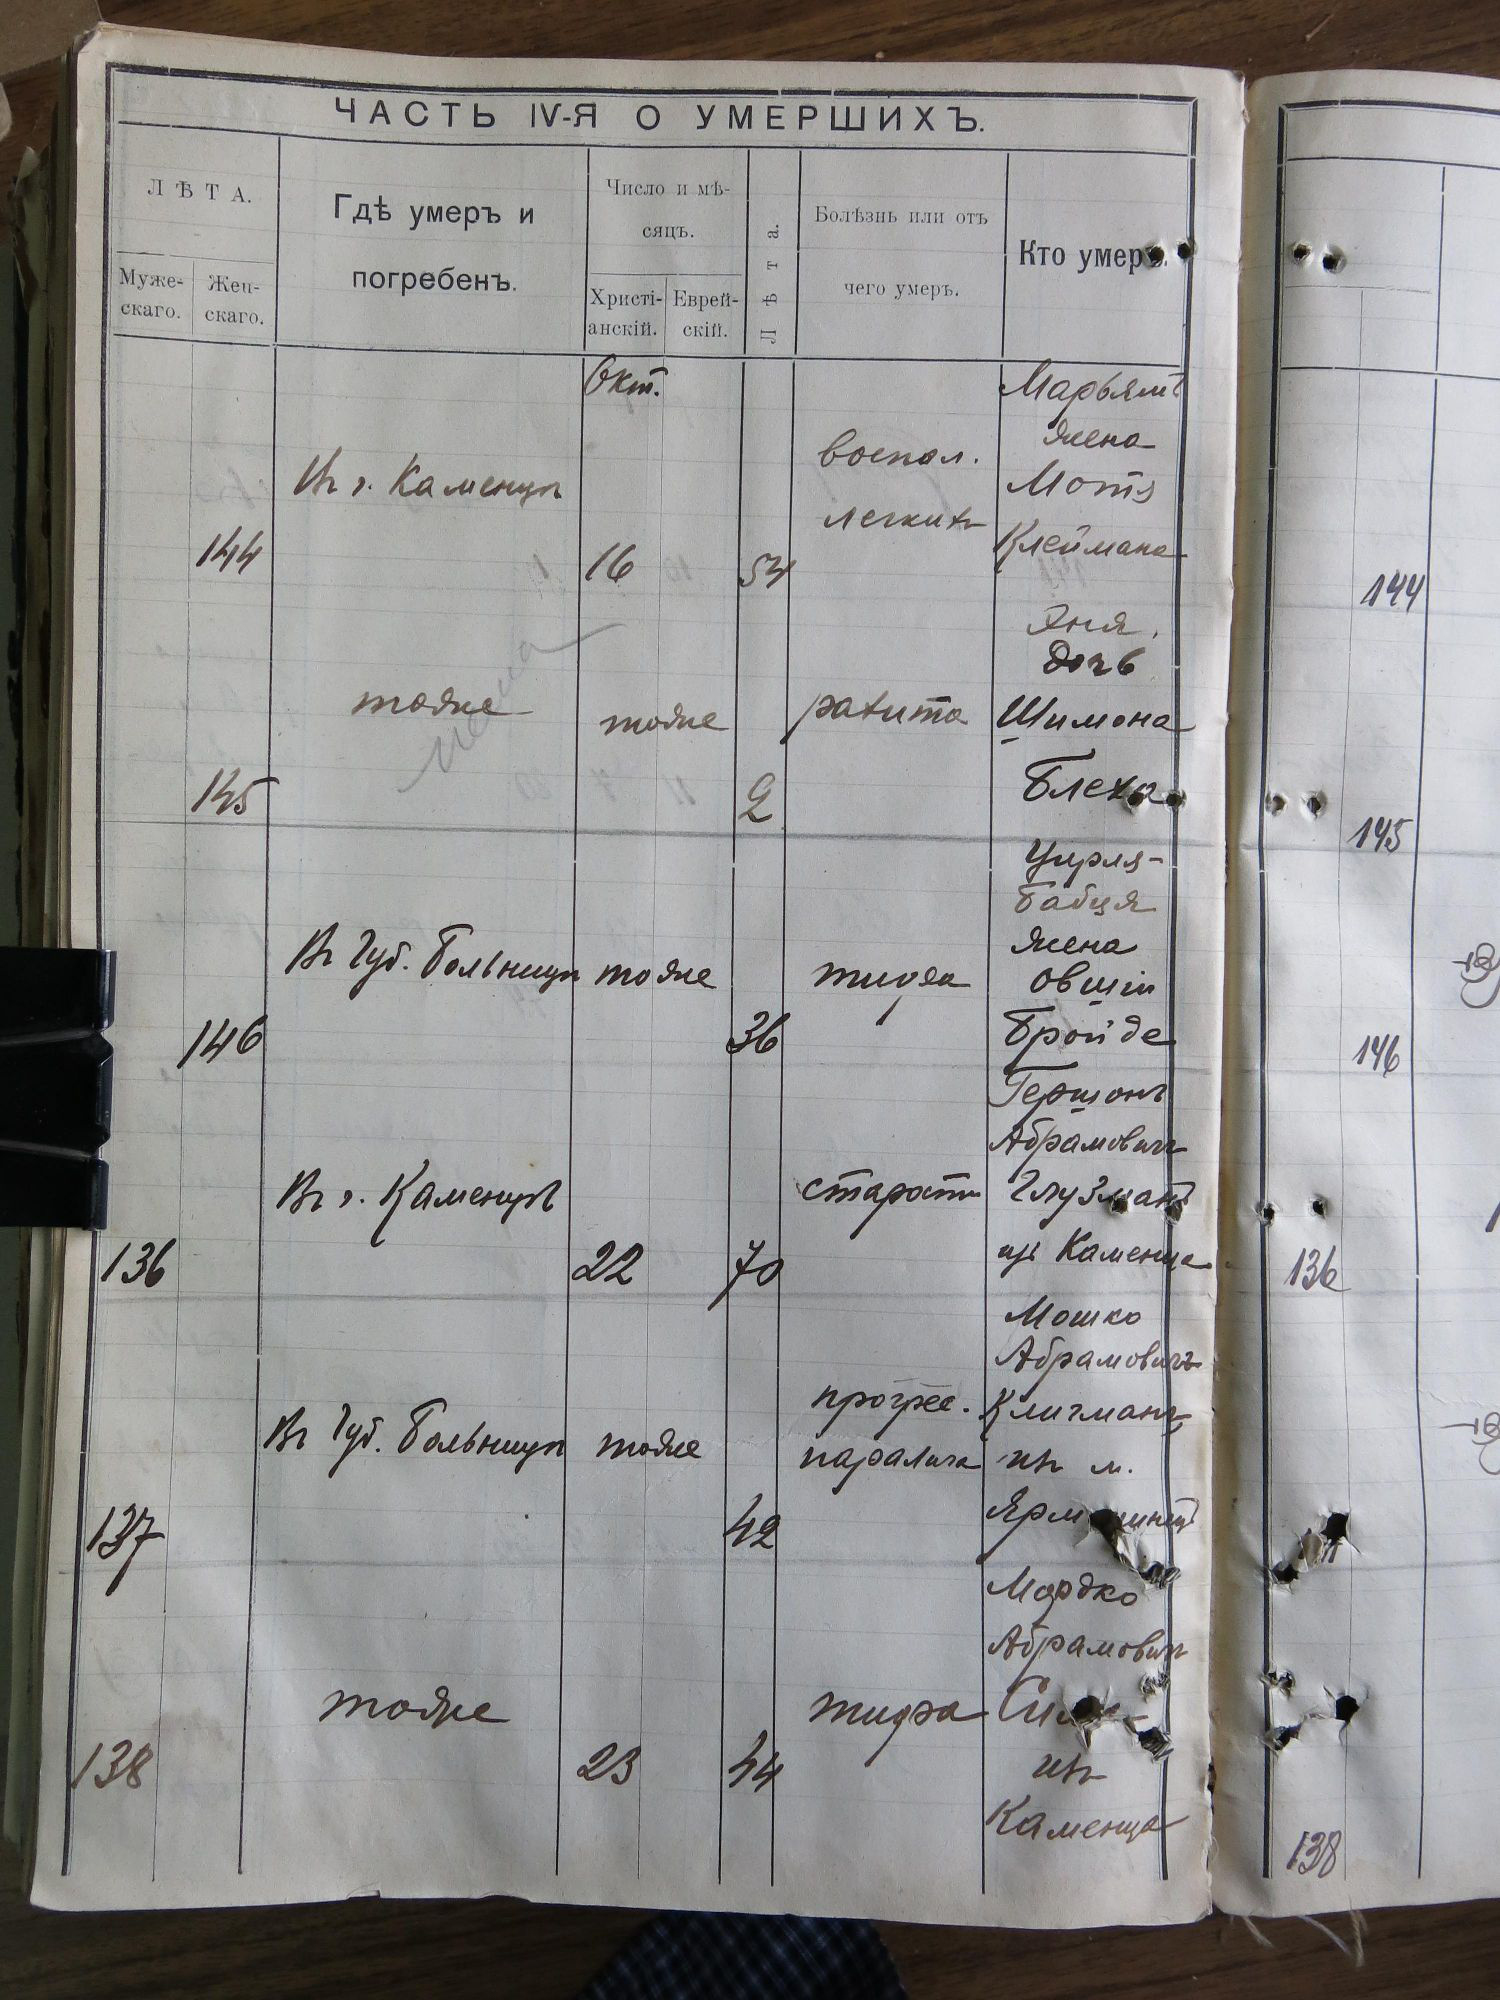 ЧАСТЬ IV-Я О УМЕРШИХЪ.
ЛѢТА.
Муже-
скаго.
Жен-
скаго.
Гдѣ умеръ и
погребенъ.
Число и мѣ-
сяцъ.
Христі-
анскій.
Еврей-
скій.
Лѣта.
Болѣзнь или отъ
чего умеръ.
Кто умеръ.
144
Въ г. Каменцѣ
Окт.
16
54
воспал.
легкихъ
Марьямъ
жена
Мотя
Клеймана
144
145
тоже
тоже
2
рахита
Хня,
дочь
Шимона
Блеха
145
146
Въ Губ. Больницѣ
тоже
36
тифа
Цирля-
Бабця
жена
Овшiи
Бройде
146
136
Въ г. Каменцѣ
22
70
старости
Гершонъ
Абрамовичъ
Глузманъ
изъ Каменца
136
137
Въ Губ. Больницѣ
тоже
42
прогрес.
паралича
Мошко
Абрамовичъ
Клигманъ,
изъ м.
138
тоже
23
44
тифа
Мордко
Абрамовичъ
изъ
Каменца
138